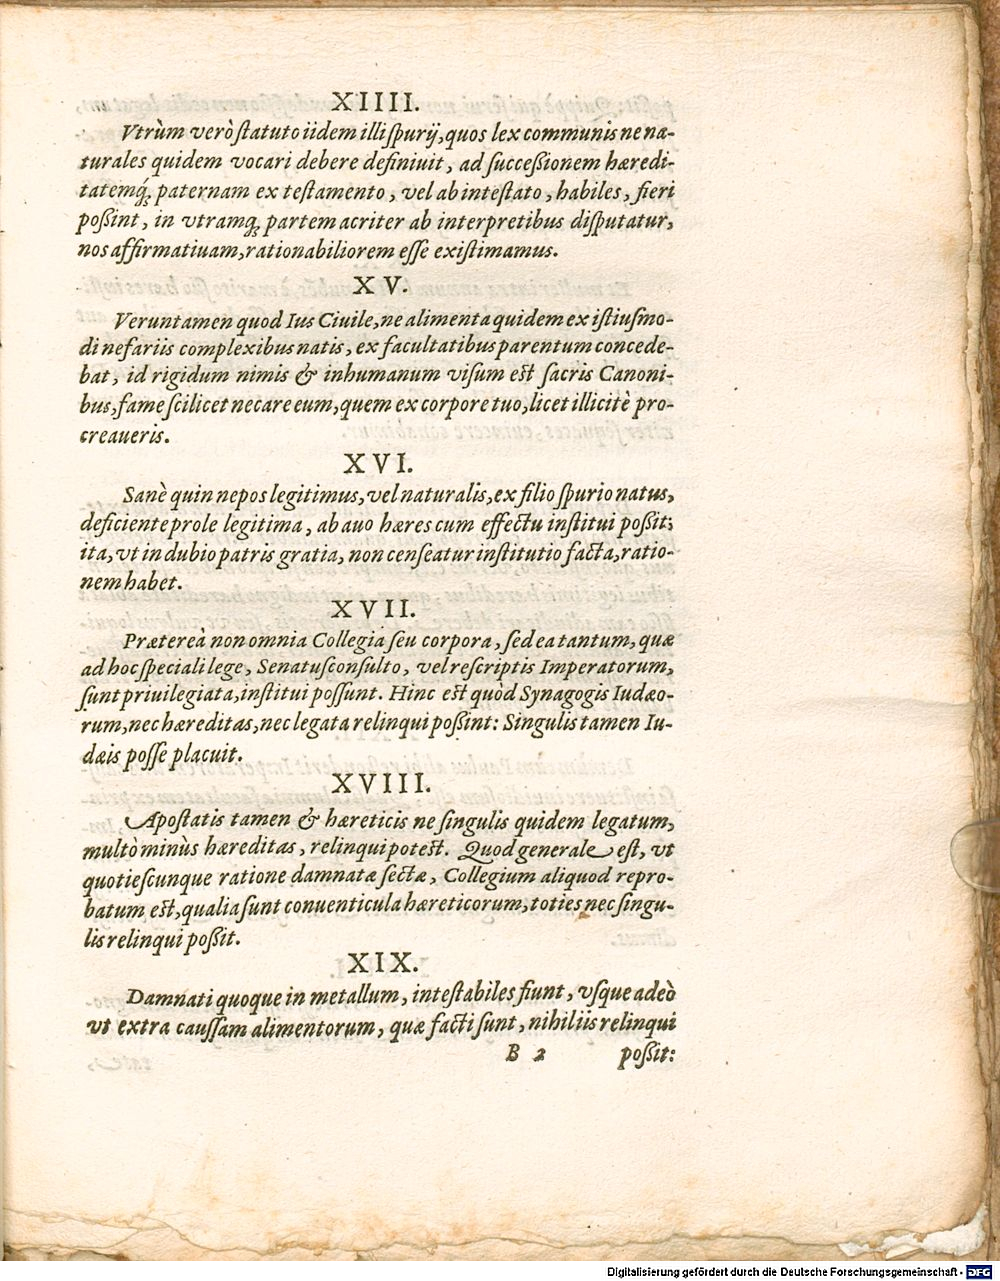 XIIII.
Vtrùm verò ſtatuto iidem illi ſpurij, quos lex communis ne na-
turales quidem vocari debere definiuit, ad ſucceßionem hæredi-
tatemq́; paternam ex teſtamento, vel ab inteſtato, habiles, fieri
poßint, in vtramq; partem acriter ab interpretibus diſputatur,
nos affirmatiuam, rationabiliorem eſſe exiſtimamus.
XV.
Veruntamen quod Ius Ciuile, ne alimenta quidem ex iſtiuſmo-
di nefariis complexibus natis, ex facultatibus parentum concede-
bat, id rigidum nimis & inhumanum viſum eſt ſacris Canoni-
bus, fame ſcilicet necare eum, quem ex corpore tuo, licet illicitè pro-
creaueris.
XVI.
Sanè quin nepos legitimus, vel naturalis, ex filio ſpurio natus,
deficiente prole legitima, ab auo hæres cum effectu inſtitui poßit;
ita, vt in dubio patris gratia, non cenſeatur inſtitutio facta, ratio-
nem habet.
XVII.
Prætereà non omnia Collegia ſeu corpora, ſed ea tantum, quæ
ad hoc ſpeciali lege, Senatuſconſulto, vel reſcriptis Imperatorum,
ſunt priuilegiata, inſtitui poſſunt. Hinc eſt quòd Synagogis Iudæo-
rum, nec hæreditas, nec legata relinqui poßint: Singulis tamen Iu-
dæis poſſe placuit.
XVIII.
Apoſtatis tamen & hæreticis ne ſingulis quidem legatum,
multò minùs hæreditas, relinqui poteſt. Quod generale eſt, vt
quotieſcunque ratione damnatæ ſectæ, Collegium aliquod repro-
batum eſt, qualia ſunt conuenticula hæreticorum, toties nec ſingu-
lis relinqui poßit.
XIX.
Damnati quoque in metallum, inteſtabiles fiunt, vſque adeò
vt extra cauſſam alimentorum, quæ facti ſunt, nihil iis relinqui
B 2 poßit:
Digitalisierung gefördert durch die Deutsche Forschungsgemeinschaft - DFG